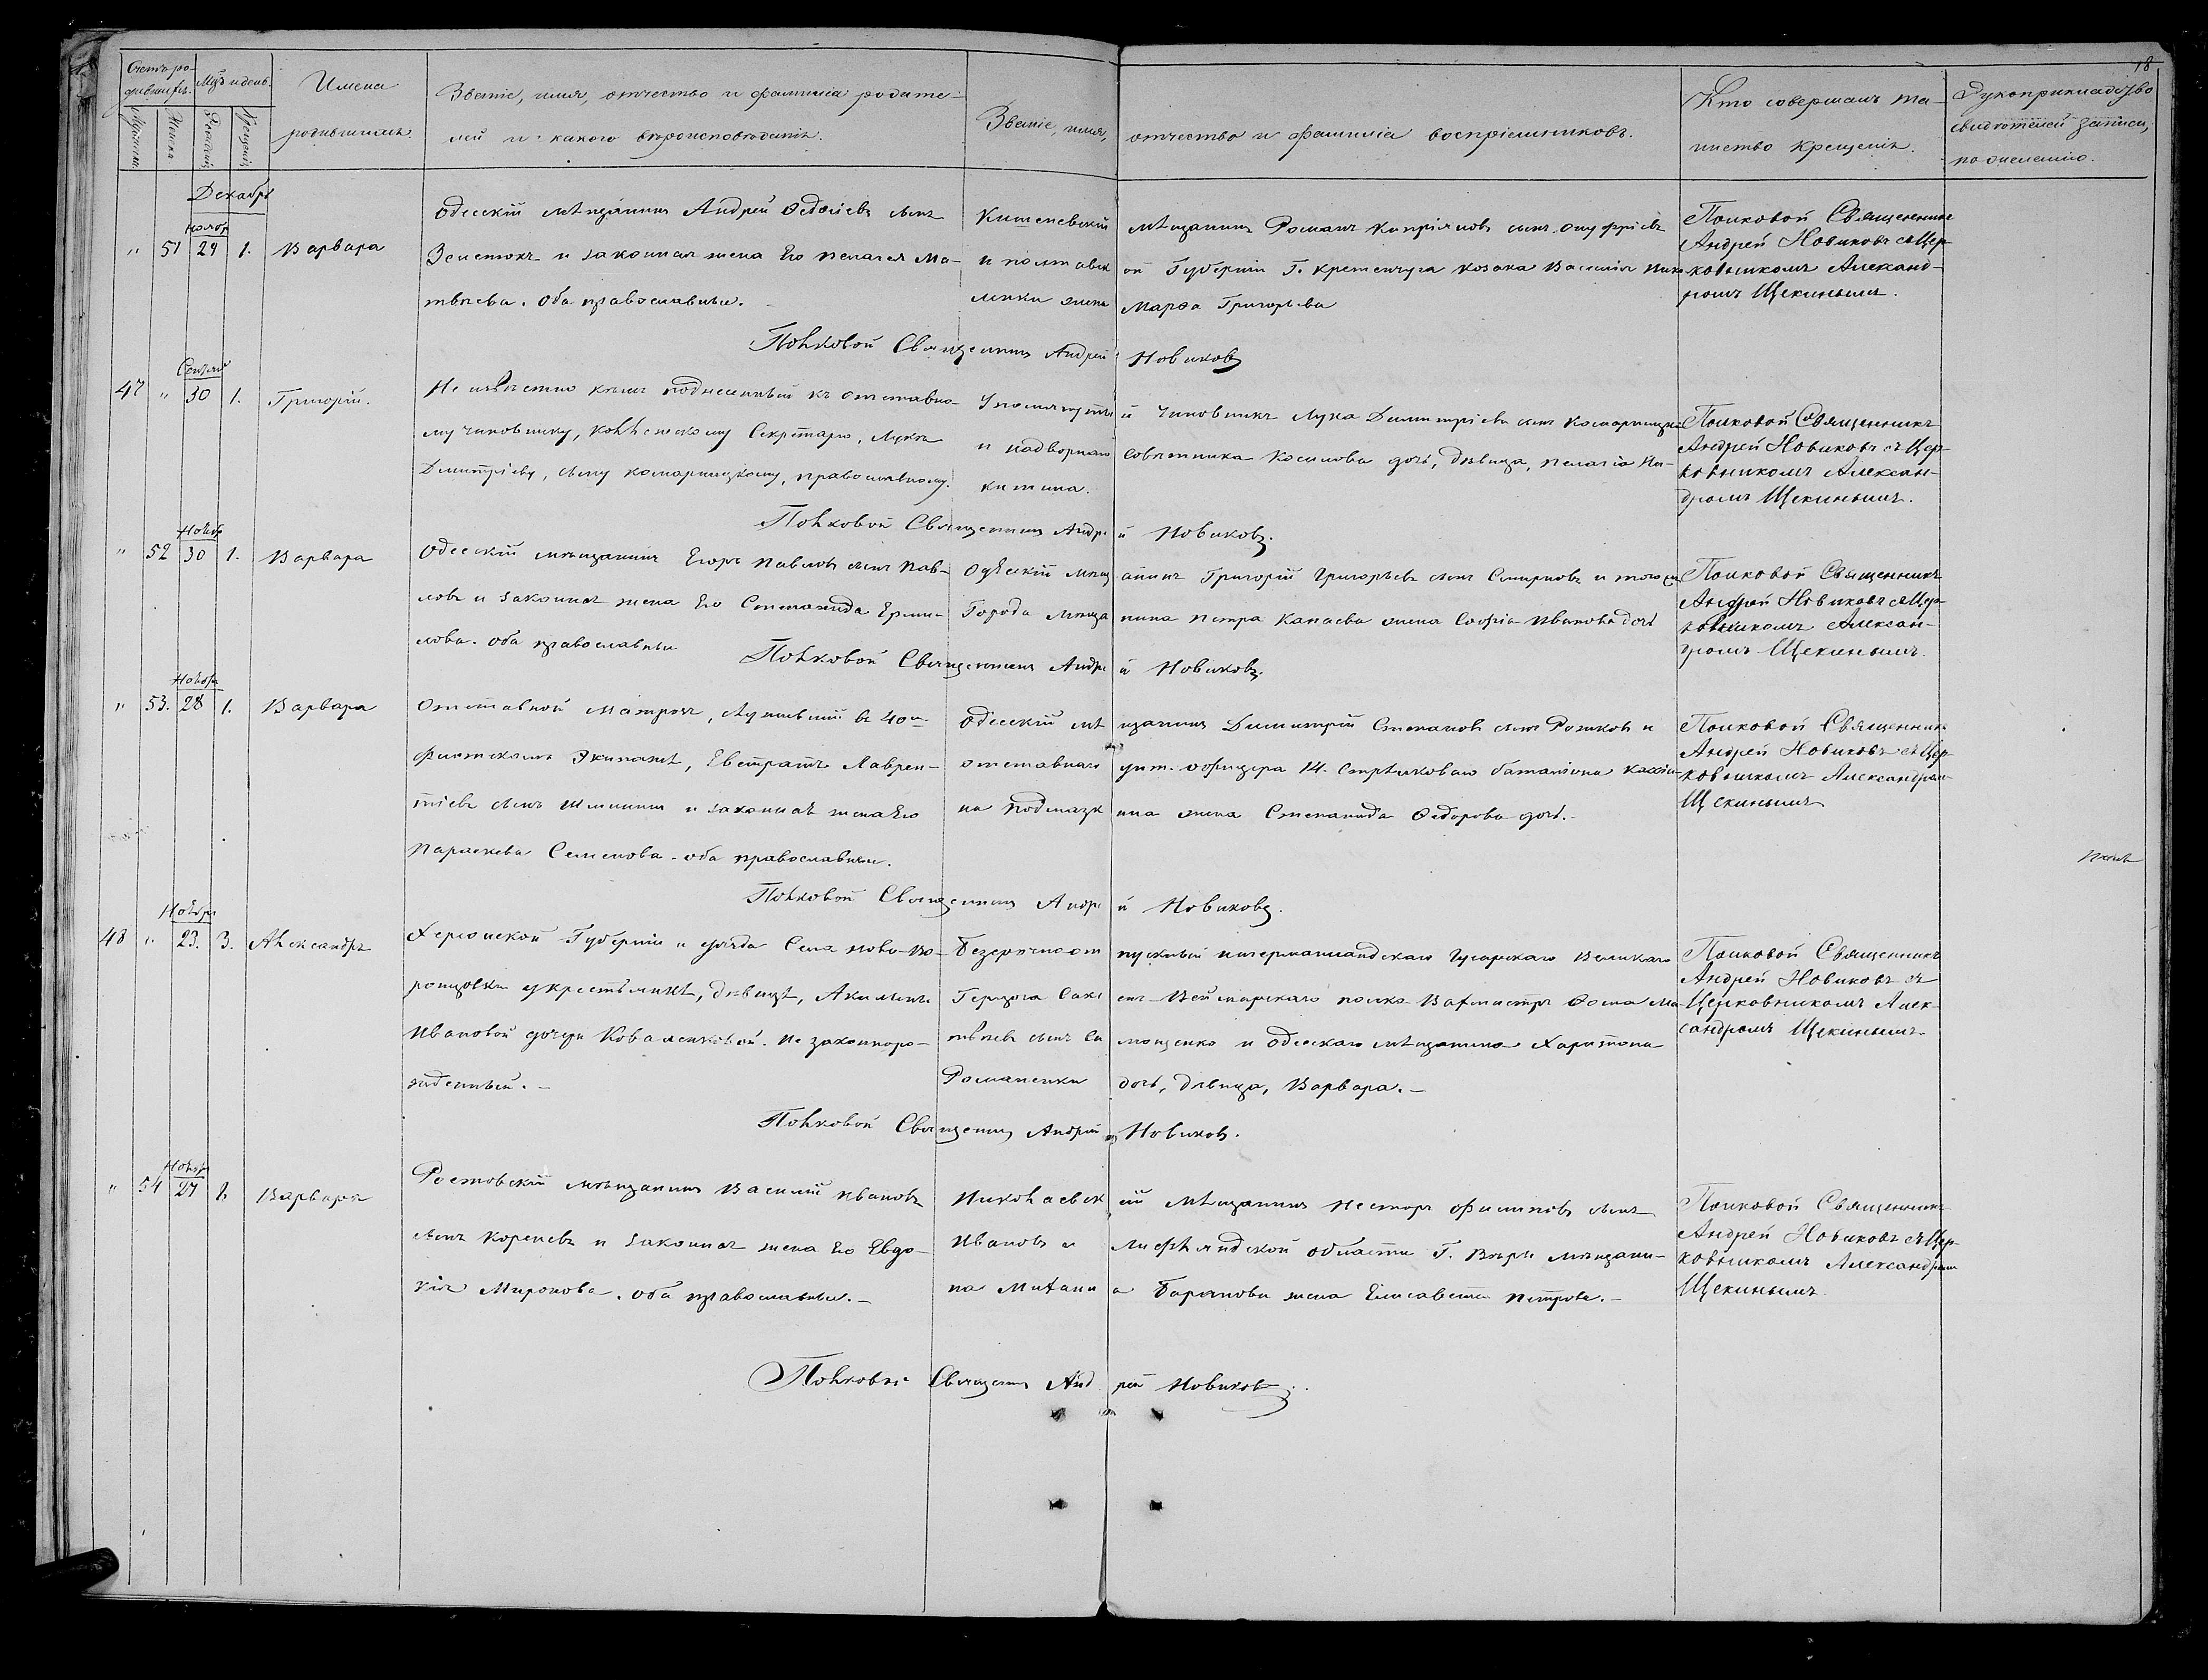 18
Счетъ ро-
дившихся.
Мцъ и день.
Мужеска.
Женска.
Рожденія
Крещенія
Имена
родившихся.
Званіе, имя, отчество и фамилія родите-
лей и какого вѣроисповѣданія.
Званіе, имя, отчество и фамилія воспріемниковъ.
Кто совершалъ та-
инство крещенія.
Рукоприкладство
свидѣтелей записи,
по желанію.
Декабрь
Ноябр
" 51 29 1. Варвара
Одесскій мѣщанинъ Андрей Ѳедосіевъ сынъ
и законная жена Его Пелагея Ма-
твѣева. Оба православные.
Кишеневскій мѣщанинъ Романъ Кипріяновъ сынъ Онуфріевъ
и полтавской Губерніи Г. Кременчуга козака Василія
жена Марѳа Григорьева
Полковой Священникъ
Андрей Новиковъ съ Цер-
ковникомъ Александ-
ромъ Щекинымъ.
Полковой Священникъ Андрей Новиковъ
47 " 30 1. Григорій.
Не извѣстно кѣмъ поднесенный къ отставно-
му чиновнику, Коллежскому Секретарю, Лукѣ
Димитріеву, сыну Комарницкому, православному.
Упомянутый Чиновникъ Лука Димитріевъ сынъ Комарницкій
и надворнаго Совѣтника Косилова дочь, дѣвица, Пелагія Ни-
китина.
Полковой Священникъ
Андрей Новиковъ съ Цер-
ковникомъ Алексан-
дромъ Щекинымъ.
Полковой Священникъ Андрей Новиковъ.
Ноябр
" 52 30 1. Варвара
Одесскій мѣщанинъ Егоръ Павловъ сынъ Пав-
ловъ и законная жена Его Степанида Ерми-
лова. Оба православные
Одесскій мѣщанинъ Григорій Григорьевъ сынъ Смирновъ и того же
Города мѣщанина Петра Капаева жена Софія Иванова дочь
Полковой Священникъ
Андрей Новиковъ съ Цер-
ковникомъ Алексан-
дромъ Щекинымъ.
Полковой Священникъ Андрей Новиковъ.
Ноября
" 53. 28 1. Варвара
Отставной матросъ, служившій въ 40мъ
Флотскомъ Экипажѣ, Евстратъ Лаврен-
тіевъ сынъ и законная жена Его
Параскева Семенова. оба православные.
Одесскій мѣщанинъ Димитрій Степановъ сынъ Рожковъ и
отставнаго унт. офицера 14. Стрѣлковаго баталіона
жена Степанида Ѳедорова дочь.
Полковой Священникъ
Андрей Новиковъ съ Цер-
ковникомъ Александромъ
Щекинымъ
Полковой Священникъ Андрей Новиковъ.
Ноября
48 " 23. 3. Александръ
Херсонской Губерніи и уѣзда Села Ново-Во-
ронцовки у крестьянки, дѣвицы, Акилины
Ивановой дочери Коваленковой. Не законноро-
жденный.
Безсрочноотпускный ингерманландскаго Гусарскаго Великаго
Герцога Саксенъ-Веймарскаго полка Вахмистръ Ѳома Ма-
твѣевъ сынъ и Одесскаго мѣщанина Харитона
Романенки дочь, дѣвица, Варвара.
Полковой Священникъ
Андрей Новиковъ съ
Церковникомъ Алек-
сандромъ Щекинымъ.
Полковой Священникъ Андрей Новиковъ.
Ноября
" 54 1. Варвара
Ростовскій мѣщанинъ Василій Ивановъ
сынъ Кореневъ и законная жена Его Евдо-
кія Миронова. Оба православные.
Николаевскій мѣщанинъ Несторъ Филиповъ сынъ
Ивановъ и Лифляндской области Г. мѣщани-
на Михаила Баранова жена Елисавета Петрова.
Полковой Священникъ
Андрей Новиковъ съ Цер-
ковникомъ Александромъ
Щекинымъ
Полковый Священникъ Андрей Новиковъ.